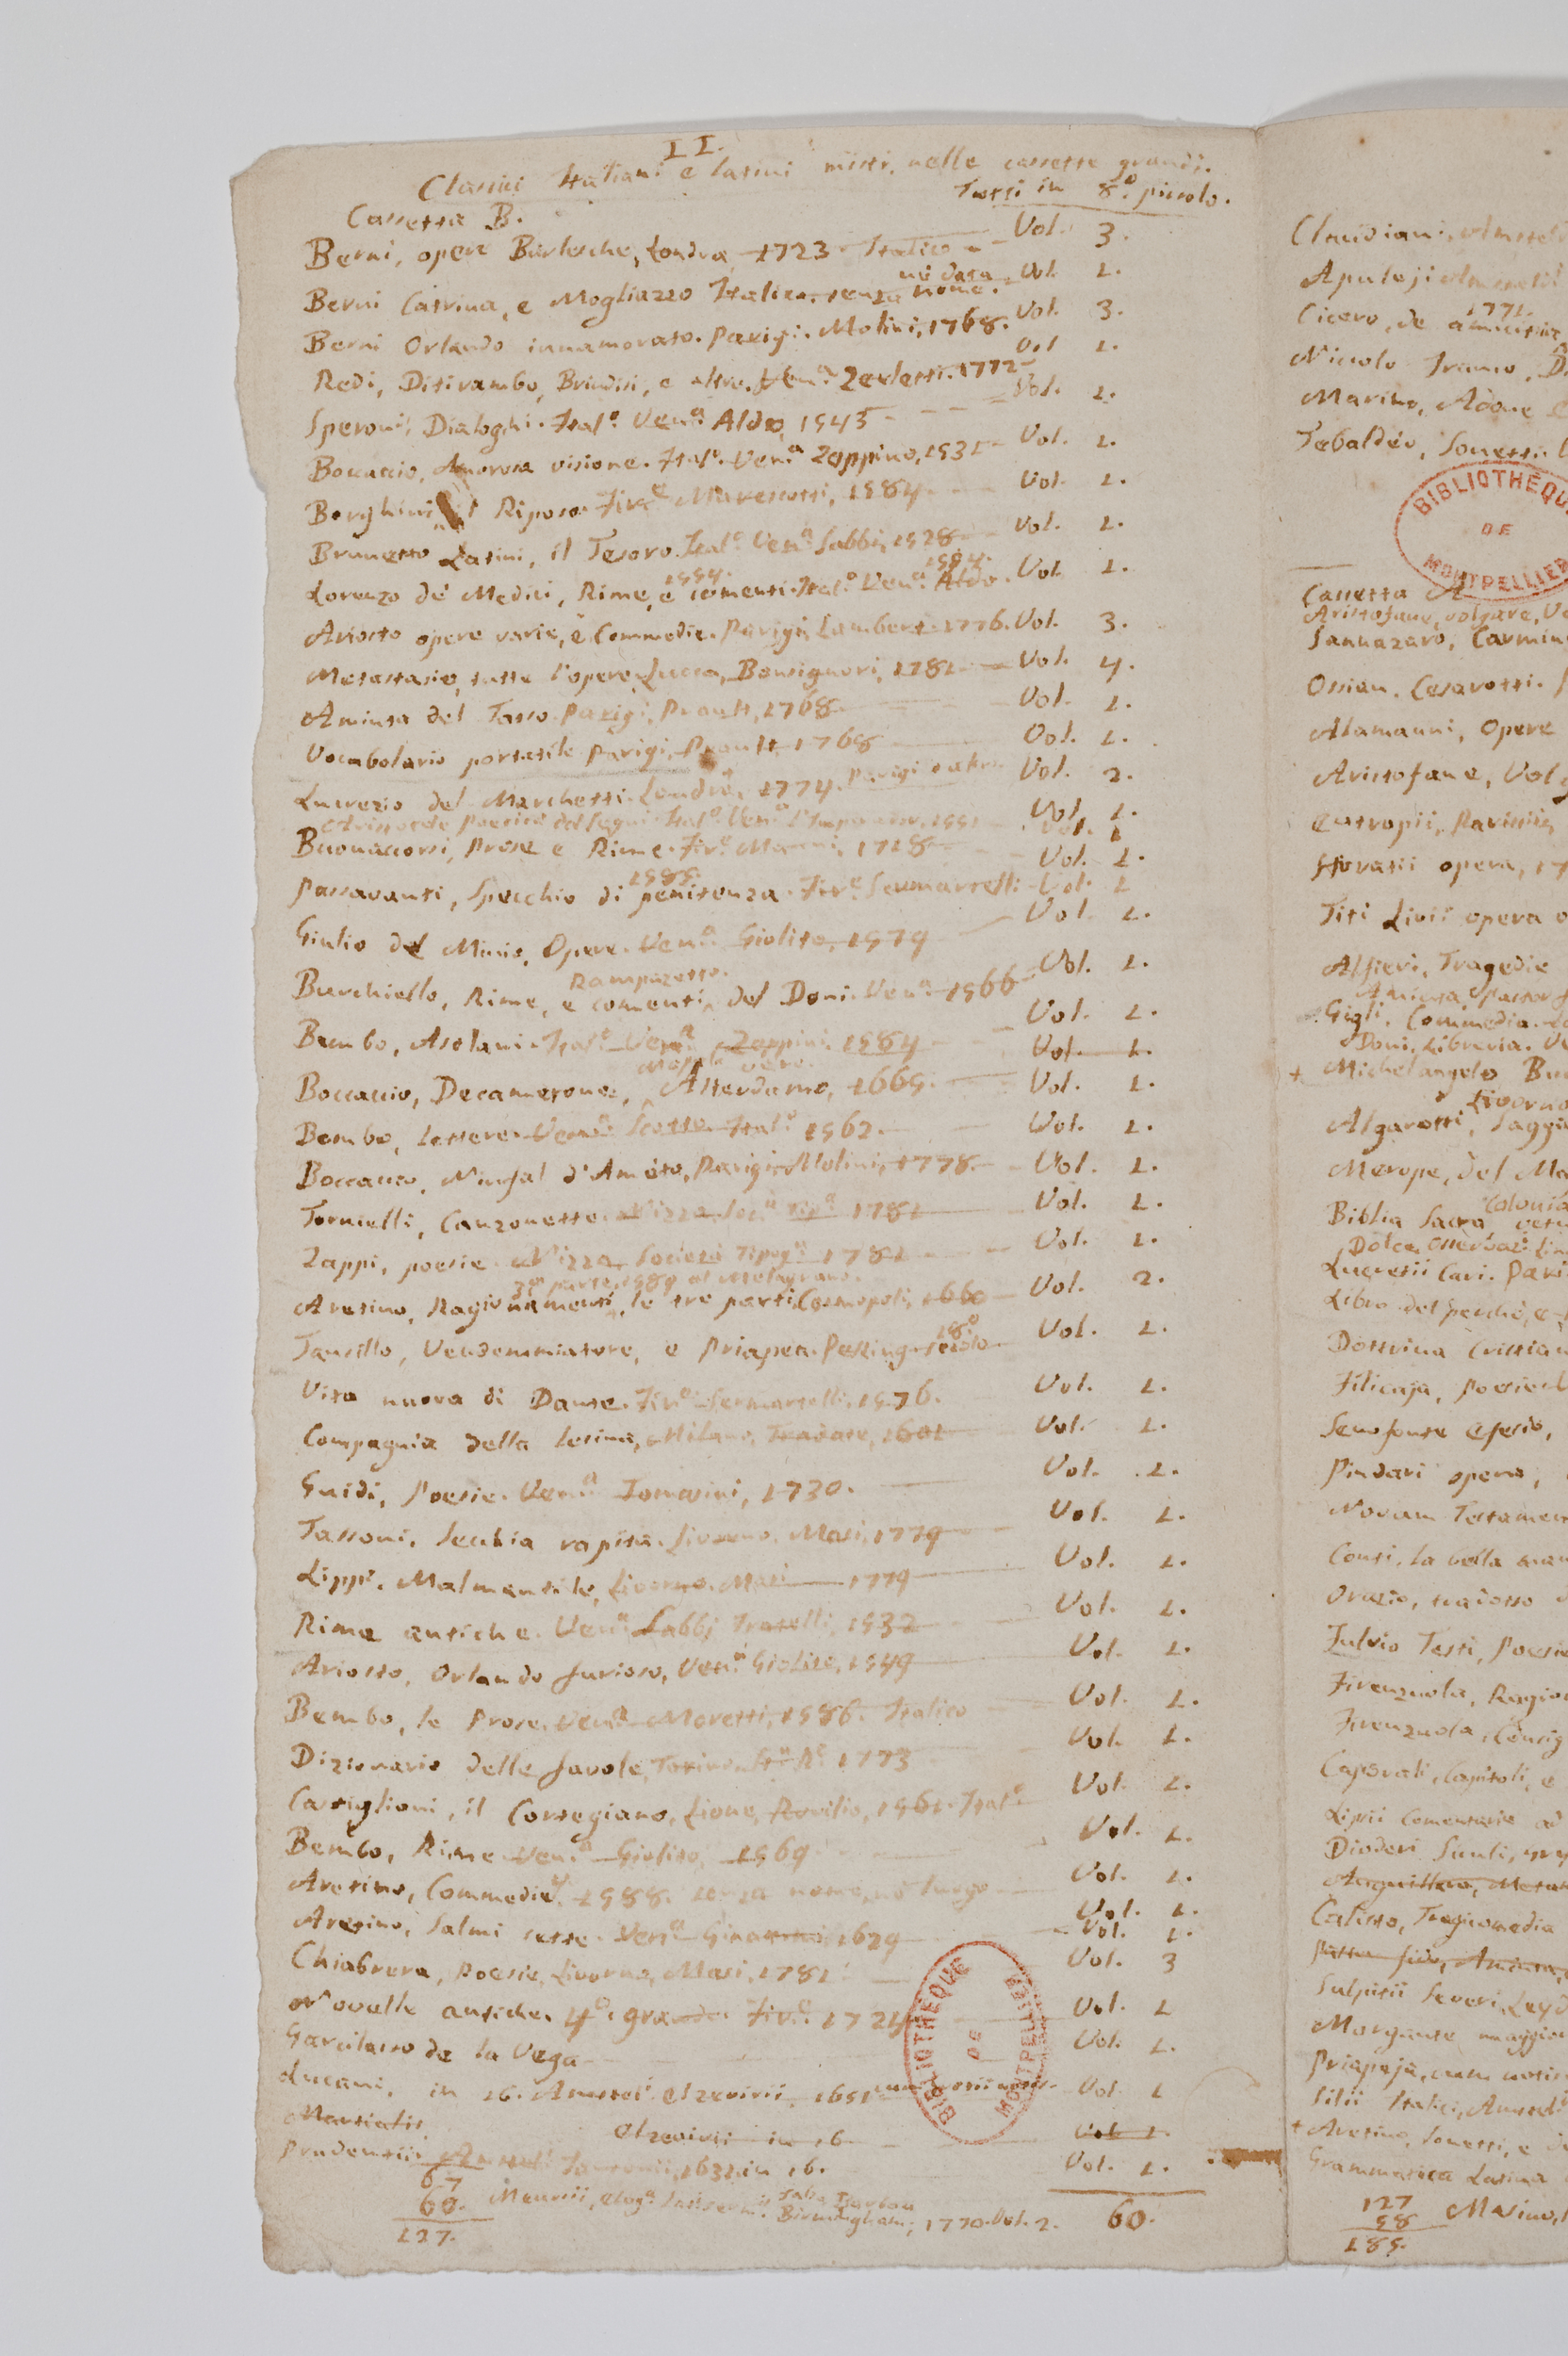 II.
Classici Italiani e latini misti, nelle cassette grandi.
Tutti in 8.o piccolo.
Cassetta B.
Berni, opere Burlesche, Londra, 1723. Italico Vol. 3.
Berni Catrina, e Mogliazzo Italico. senza nome. né data Vol. 1.
Berni Orlando innamorato. Parigi. Molini, 1768. Vol. 3.
Redi, Ditirambo, Brindisi, e altro. Ven.a Zerletti. 1772 Vol. 1.
Speroni, Dialoghi. Ital.o Ven.a Aldo, 1545 Vol. 1.
Boccaccio, Amorosa visione. Ital.o Ven.a Zoppino, 1531 Vol. 1.
Borghini, il Riposo. Fir.e Marescotti, 1584. Vol. 1.
Brunetto Latini, il Tesoro. Ital.o Ven.a Sabbi, 1528 Vol. 1.
Lorenzo de' Medici, Rime, e comenti. Ital.o Ven.a Aldo. 1554. 1554. Vol. 1.
Ariosto opere varie, e Commedie. Parigi, Lambert. 1776. Vol. 3.
Metastasio, tutte l'opere. Lucca, Bonsignori, 1781 Vol. 4.
Aminta del Tasso. Parigi, Prault, 1768. Vol. 1.
Vocabolario portatile. Parigi, Prault, 1768 Vol. 1.
Lucrezio del Marchetti. Londra. 1774. Parigi Vol. 2.
Aristotele Poetica del Segni. Ital.o Ven.a l'Imperador, 1551 Vol. 1.
Buonaccorsi, Prose e Rime. Fir.e Manni, 1718 Vol. 1
Passavanti, Specchio di penitenza. Fir.e Sermartelli 1585. Vol. 1.
Vol. 1
Giulio del Minio, Opere. Ven.a Giolito, 1579 Vol. 1.
Burchiello, Rime, e comenti, del Doni. Ven.a 1566 Rampazetto. Vol. 1.
Bembo, Asolani. Ital.o Ven.a Zoppini. 1584 Vol. 1.
Vol. 1.
Boccaccio, Decamerone, Amsterdamo, 1665. Vol. 1.
Bembo, Lettere. Ven.a Scotto. Ital.o 1562. Vol. 1.
Boccaccio, Ninfal d'Ameto, Parigi. Molini, 1778. Vol. 1.
Tornielli, Canzonette. Nizza. Soc.a Tip.a 1781 Vol. 1.
Zappi, poesie. Nizza, Società Tipog.a 1781 Vol. 1.
3.a parte, 1589 al Melagrano.
Aretino, Ragionamenti, le tre parti. Cosmopoli, 1660 Vol. 2.
Tansillo, Vendemmiatore, e Priapea. Peking. 18.o secolo Vol. 1.
Vita nuova di Dante. Fir.e Sermartelli, 1576. Vol. 1.
Compagnia della Lesina, Milano, Tradate, 1601 Vol. 1.
Guidi, Poesie. Ven.a Tomasini, 1730. Vol. 1.
Tassoni, Secchia rapita. Livorno. Masi, 1779 Vol. 1.
Lippi. Malmantile, Livorno. Masi 1779 Vol. 1.
Rime antiche. Ven.a Sabbj Fratelli, 1532 Vol. 1.
Ariosto, Orlando furioso, Ven.a Giolito, 1549 Vol. 1.
Bembo, le Prose. Ven.a Moretti, 1586. Italico Vol. 1.
Dizionario delle favole, Torino 1773 Vol. 1.
Castiglioni, il Cortegiano, Lione, Rovilio, 1562. Ital.o Vol. 1.
Bembo, Rime. Ven.a Giolito, 1569 Vol. 1.
Aretino, Commedie. 1588. senza nome, nè luogo Vol. 1.
Vol. 1.
Aretino, Salmi sette. Ven.a Ginammi 1629 Vol. 1.
Chiabrera, Poesie, Livorno, Masi, 1781 Vol. 3
Novelle antiche. 4.o grande. Fir.e 1724 Vol. 1
Garcilasso de la Vega Vol. 1.
Lucani, in 16. Amstel. Elzevirii, 1651 Vol. 1
Martialis, Elzevirii in 16 Vol. 1.
Prudentii, Amstel. Janssonii, 1631. in 16. Vol. 1.
67
60.
127.
Meursii, Birmingham, 1770. Vol. 2.
60.
BIBLIOTHÈQUE DE MONTPELLIER
Claudiani,
Apuleji
1771.
Cicero, de amicitia
Niccolo Franco,
Marino, Adone
Tebaldeo, Sonetti.
BIBLIOTHÈQU
DE
MONTPELLIER
Cassetta A
Aristofane, volgare,
Sannazaro, Carmin
Ossian. Cesarotti.
Alamanni, Opere
Aristofane, Volg
Eutropii, Parisiis
Horatii opera, 17
Titi Livii opera o
Alfieri, Tragedie
Aminta, Pastor f
Gigli, Commedia.
Doni, Libreria. Ve
+ Michelangelo Bu
Livorno
Algarotti, Saggi
Merope, del Ma
Colonia
Biblia Sacra, vetu
Dolce Osservaz. Lin
Lucretii Cari. Pari
Libro del perchè, e
Dottrina Cristian
Filicaja, Poesie
Senofonte Efesio,
Pindari opera,
Novum Testamen
Conti, la bella man
Orazio, tradotto d
Fulvio Testi, Poesie
Firenzuola, Ragio
Firenzuola, Consig
Caporali, Capitoli, e
Lipsii Comentarie ad
Diodori Siculi,
Anguillara, Metam
Calisto, Tragicomedia
Pastor fido, Aminta,
Sulpitii Severi, Leyd
Morgante maggior
Priapeja, cum notis
Silii Italici, Amstel.
+ Aretino, Sonetti, e
Grammatica Latina
127
58
185.
Marino,